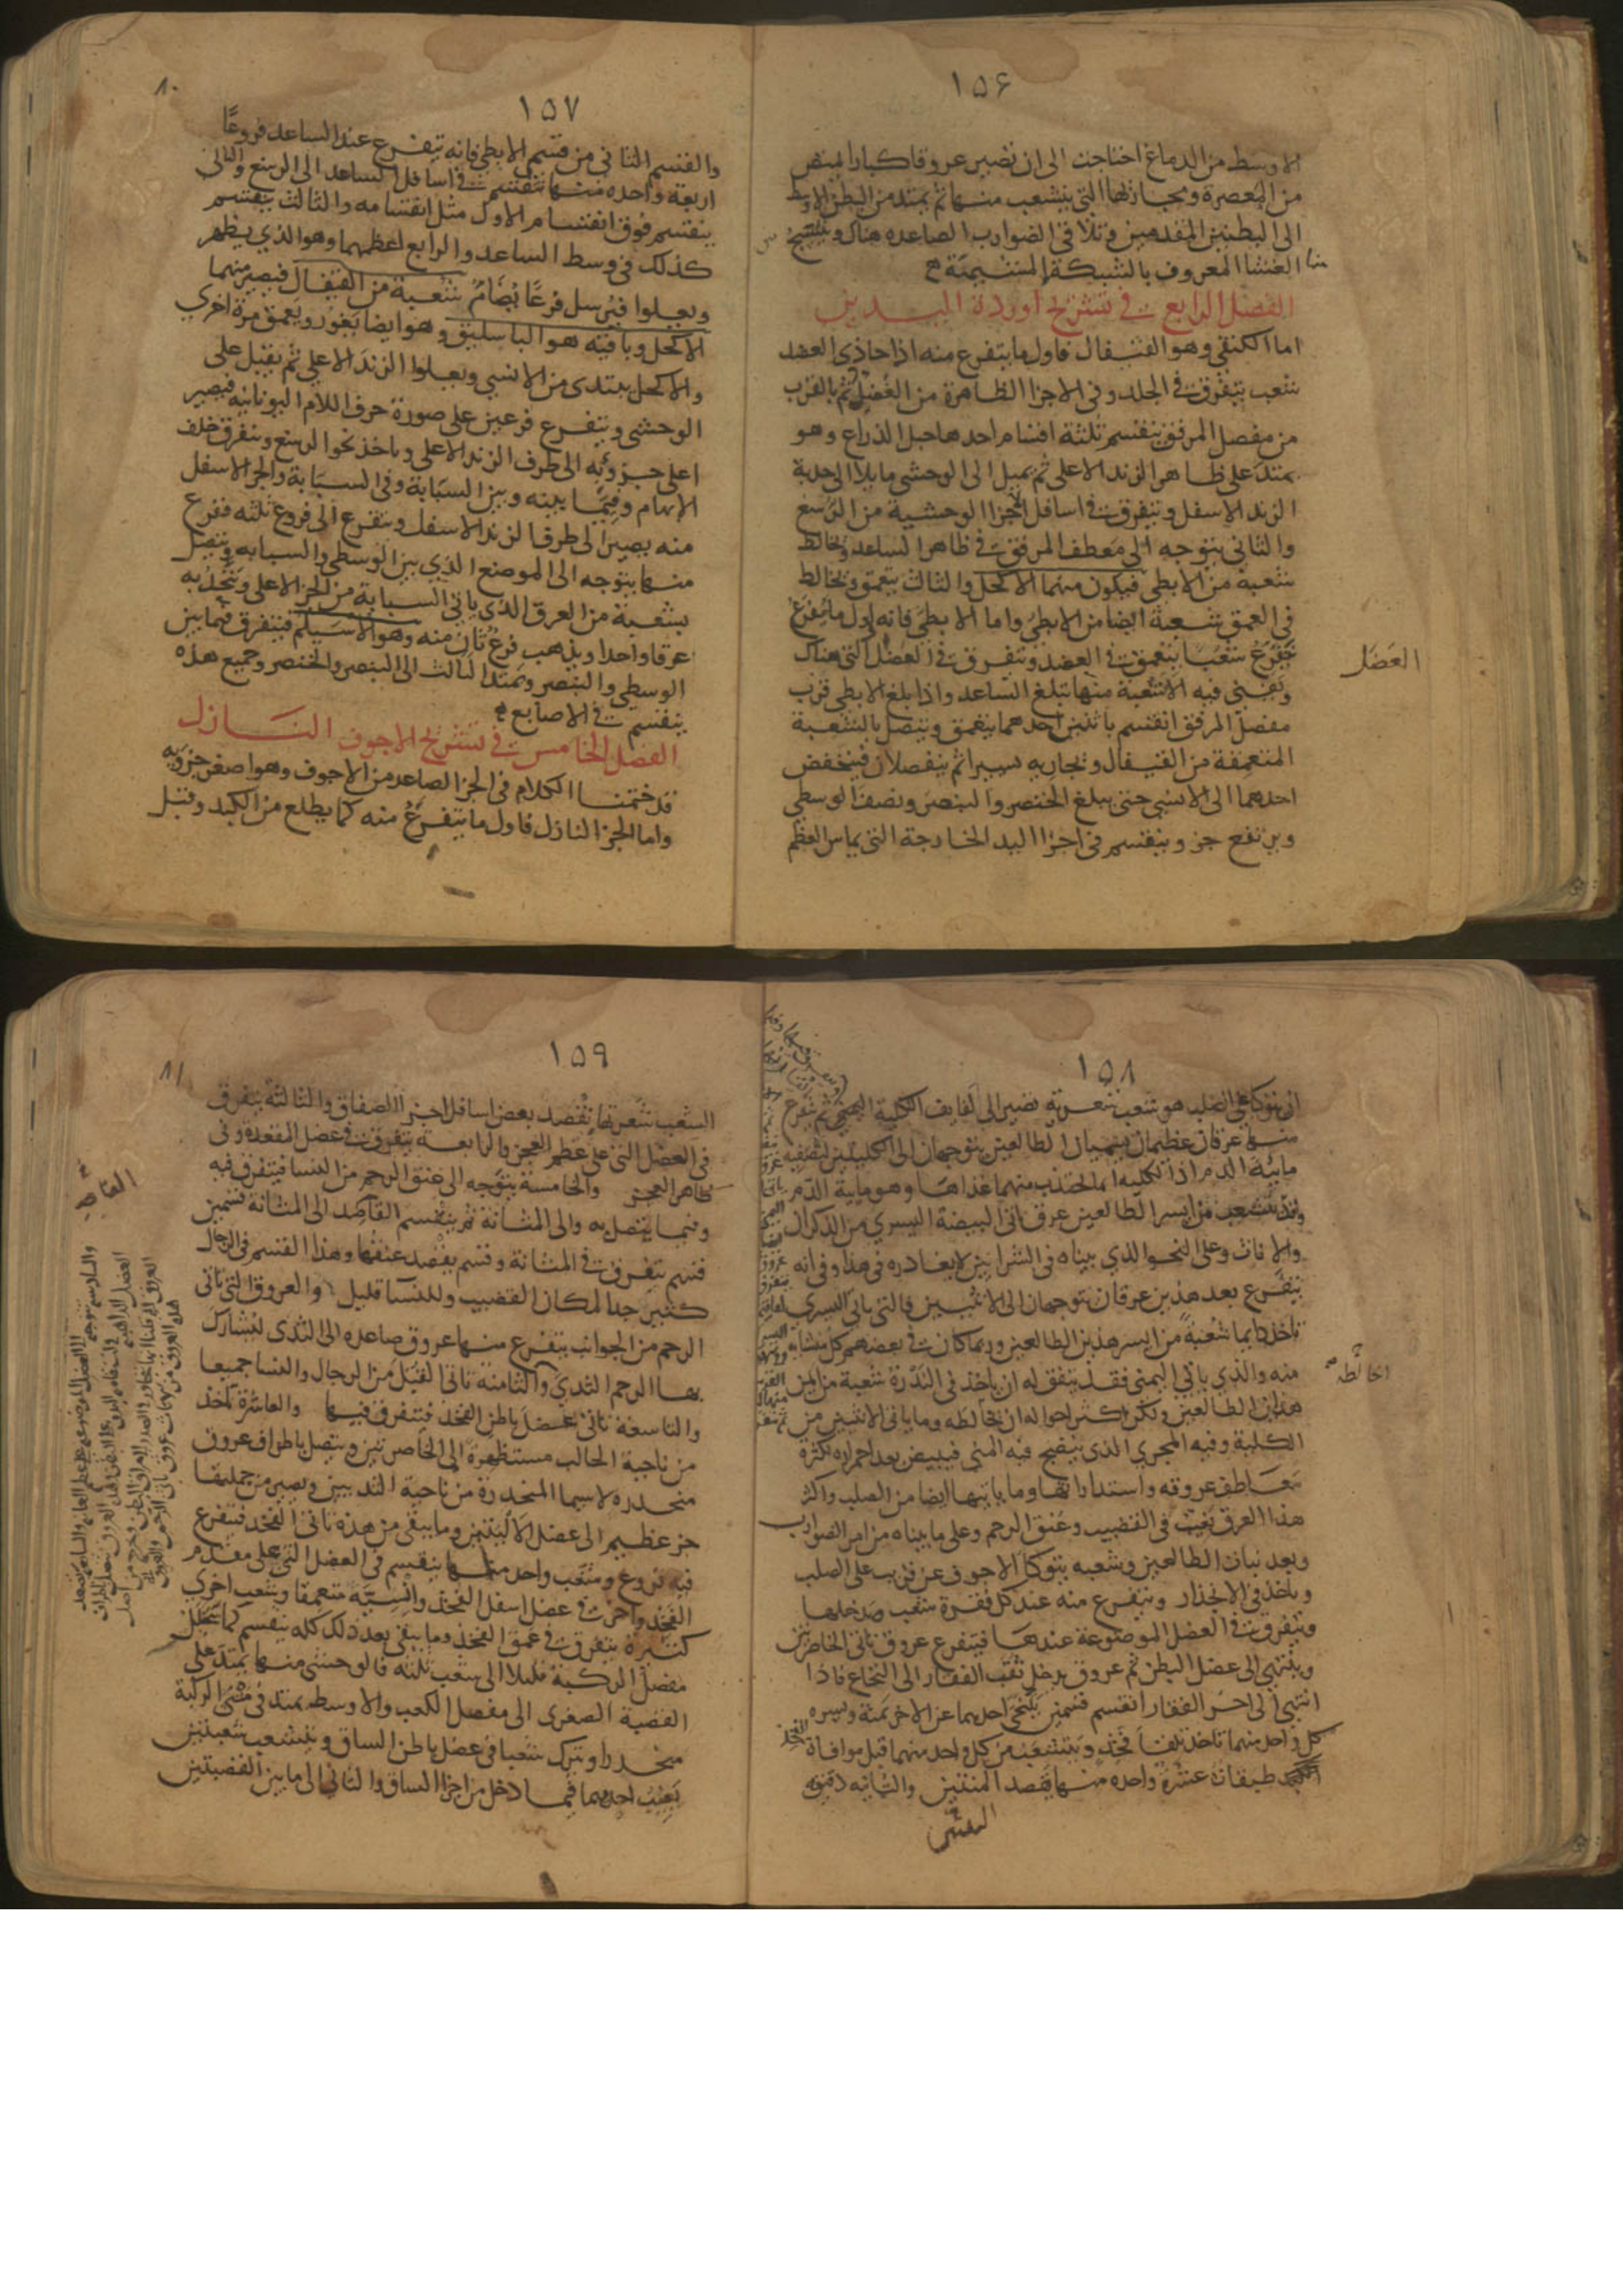 ١٥۶
الاوسط من الدماغ احتاجت الى ان تصير عروقا كبارا لتمتص
من المعصرة ومجاريها التى يتشعب منها ثم يمتد من البطن الاوسط
الى البطنين المقدمين وتلاقى الضوارب الصاعده هناك وينتسج
الغشا المعروف بالشبكة المشيمية
الفصل الرابع فى تشريح اوردة اليدين
اما الكتفى وهو القيفال فاول ما يتفرع منه اذا حاذى العضد
شعب يتفرق فى الجلد وفى الاجزا الظاهرة من العضد ثم بالقرب
من مفصل المرفق ينقسم ثلثة اقسام احدها حبل الذراع وهو
يمتد على ظاهر الزند الاعلى ثم يميل الى الوحشى مايلا الى حدبة
الزند الاسفل ويتفرق فى اسافل الاجزا الوحشية من الرسغ
والثانى يتوجه الى معطف المرفق فى ظاهر الساعد ويخالط
شعبة من الابطى فيكون منهما الاكحل والثالث يتعمق ويخالط
فى العمق شعبة ايضا من الابطى واما الابطى فانه اول ما يفرع
يفرع شعبا يتعمق فى العضد ويتفرق فى العضل التى هناك
وتفنى فيه الا شعبة منها تبلغ الساعد واذا بلغ الابطى قرب
مفصل المرفق انقسم باثنين احدهما يتعمق ويتصل بالشعبة
المتعمقة من القيفال وتجاريه يسيرا ثم ينفصلان فينخفض
احدهما الى الانسى حتى يبلغ الخنصر والبنصر ونصف الوسطى
ويرتفع جزو ينقسم فى اجزا اليد الخارجة التى يماس العظم
العضل
١٥٧
٨٠
والقسم الثانى من قسمى الابطى فانه يتفرع عند الساعد فروعًا
اربعة واحده منها تنقسم فى اسافل الساعد الى الرسغ والثانى
ينقسم فوق انقسام الاول مثل انقسامه والثالث ينقسم
كذلك فى وسط الساعد والرابع اعظمها وهو الذى يظهر
ويعلوا فيرسل فرعًا يضام شعبة من القيفال فيصير منهما
الاكحل وباقيه هو الباسليق وهو ايضا يغور ويعمق مرة اخرى
والاكحل يبتدى من الانسى ويعلوا الزند الاعلى ثم يقبل على
الوحشى ويتفرع فرعين على صورة حرف اللام اليونانيه فيصير
اعلى جزويه الى طرف الزند الاعلى وياخذ نحو الرسغ ويتفرق خلف
الابهام وفيما بينه وبين السبابة وفى السبابة والجز الاسفل
منه يصير الى طرف الزند الاسفل ويتفرع الى فروع ثلثه ففرع
منها يتوجه الى الموضع الذى بين الوسطى والسبابه ويتصل
بشعبة من العرق الذى ياتى السبابة من الجز الاعلى ويتحد به
عرقا واحدا ويذهب فرع ثان منه وهو الاسيلم فيتفرق فيما بين
الوسطى والبنصر ويمتد الثالث الى البنصر والخنصر وجميع هذه
ينقسم فى الاصابع
الفصل الخامس فى تشريح الاجوف النازل
قد ختمنا الكلام فى الجز الصاعد من الاجوف وهو اصغر جزويه
واما الجز النازل فاول ما يتفرع منه كما يطلع من الكبد وقبل
١٥٨
ان يتوكا على الصلب هو شعب شعرية تصير الى لفايف الكلية اليمنى ثم يتفرع
منها عرقان عظيمان يسميان الطالعين يتوجهان الى الكليتين لتصفيه
مايية الدم اذ الكليه انما تجتذب منهما غذاها وهو مايية الدم
وقد يتشعب من ايسر الطالعين عرق ياتى البيضة اليسرى من الذكران
والاناث وعلى النحو الذى بيناه فى الشرايين لا يغادره فى هذا وفى انه
يتفرع بعد هذين عرقان يتوجهان الى الانثيين فالتى ياتى اليسرى
تاخذ دايما شعبة من ايسر هذين الطالعين وربما كان فى بعضهم كل منشايه
منه والذى ياتى اليمنى فقد يتفق له ان ياخذ فى الندرة شعبة من ايمن
هذين الطالعين ولكن اكثر احواله ان لا يخالطه وما ياتى الانثيين من
الكلية وفيه المجرى الذى ينضج فيه المنى فيبيض بعد احمراره لكثرة
معاطف عروقه واستدارتها وما ياتيها ايضا من الصلب واكثر
هذا العرق يغيب فى القضيب وعنق الرحم وعلى ما بيناه من امر الضوارب
وبعد نبات الطالعين وشعبه يتوكا الاجوف عن قرب على الصلب
وياخذ فى الانحدار ويتفرع منه عند كل فقرة شعب ويدخلها
ويتفرق فى العضل الموضوعة عندها فيتفرع عروق تاتى الخاصرتين
وينتهى الى عضل البطن ثم عروق يدخل ثقب الفقار الى النخاع فاذا
انتهى الى اخر الفقار انقسم قسمين يتنحى احدهما عن الاخر يمنة ويسره
كل واحد منهما تاخذ تلقا فخذ ويتشعب من كل واحد منهما قبل موافاة
طبقات عشرة واحده منها يقصد المتنين والثانيه دقيقه
الفخذ
الشعب
١٥٩
٨١
الشعب شعريتها يقصد بعض اسافل اجزا الصفاق والثالثه يتفرق
فى العضل التى على عظم العجز والرابعة يتفرق فى عضل المقعدة وفى
ظاهر العجز والخامسة يتوجه الى عنق الرحم من النسا فيتفرق فيه
وفيما يتصل به والى المثانة ثم ينقسم القاصد الى المثانة قسمين
قسم يتفرق فى المثانة وقسم يقصد عنقها وهذا القسم فى الرجال
كثير جدا لمكان القضيب وللنسا قليل والعروق التى تاتى
الرحم من الجوانب يتفرع منها عروق صاعده الى الثدى ليشارك
بها الرحم الثدى والثامنه تاتى القبل من الرجال والنسا جميعا
والتاسعة تاتى عضل باطن الفخذ فيتفرق فيها والعاشرة تاخذ
من ناحية الحالب مستظهرة الى الخاصرتين ويتصل باطراف عروق
منحدره لاسيما المنحدرة من ناحية الثديين ويصير من جملتها
جز عظيم الى عضل الانثيين وما يبقى من هذه ياتى الفخذ فيتفرع
فيه فروع وشعب واحد منها ينقسم فى العضل التى على مقدم
الفخذ واخر فى عضل اسفل الفخذ وانسيه متعمقا وشعب اخرى
كثيرة يتفرق فى عمق الفخذ وما يبقى بعد ذلك كله ينقسم كما يتحلل
مفصل الركبة قليلا الى شعب ثلثه فالوحشى منها يمتد على
القصبة الصغرى الى مفصل الكعب والاوسط يمتد فى مثنى الركبة
منحدرا ويترك شعبا فى عضل باطن الساق ويتشعب شعبتين
يغيب احديهما فيما دخل من اجزا الساق والثانى الى ما بين القصبتين